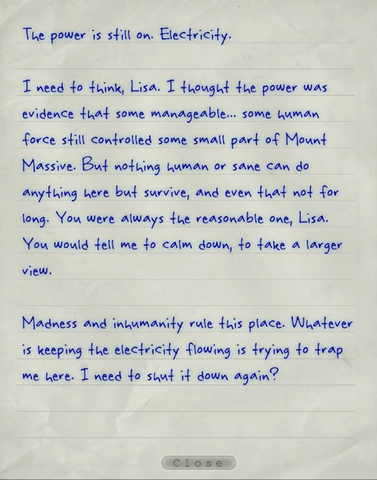 The power is still on. Electricity.
I need to think, Lisa. I thought the power was
evidence that some manageable... some human
force still controlled some small part of Mount
Massive. But nothing human or sane can do
anything here but survive, and even that not for
long. You were always the reasonable one, Lisa.
You would tell me to calm down, to take a larger
view.
Madness and inhumanity rule this place. Whatever
is keeping the electricity flowing is trying to trap
me here. I need to shut it down again?
Close